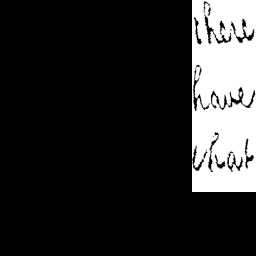 there
have
what